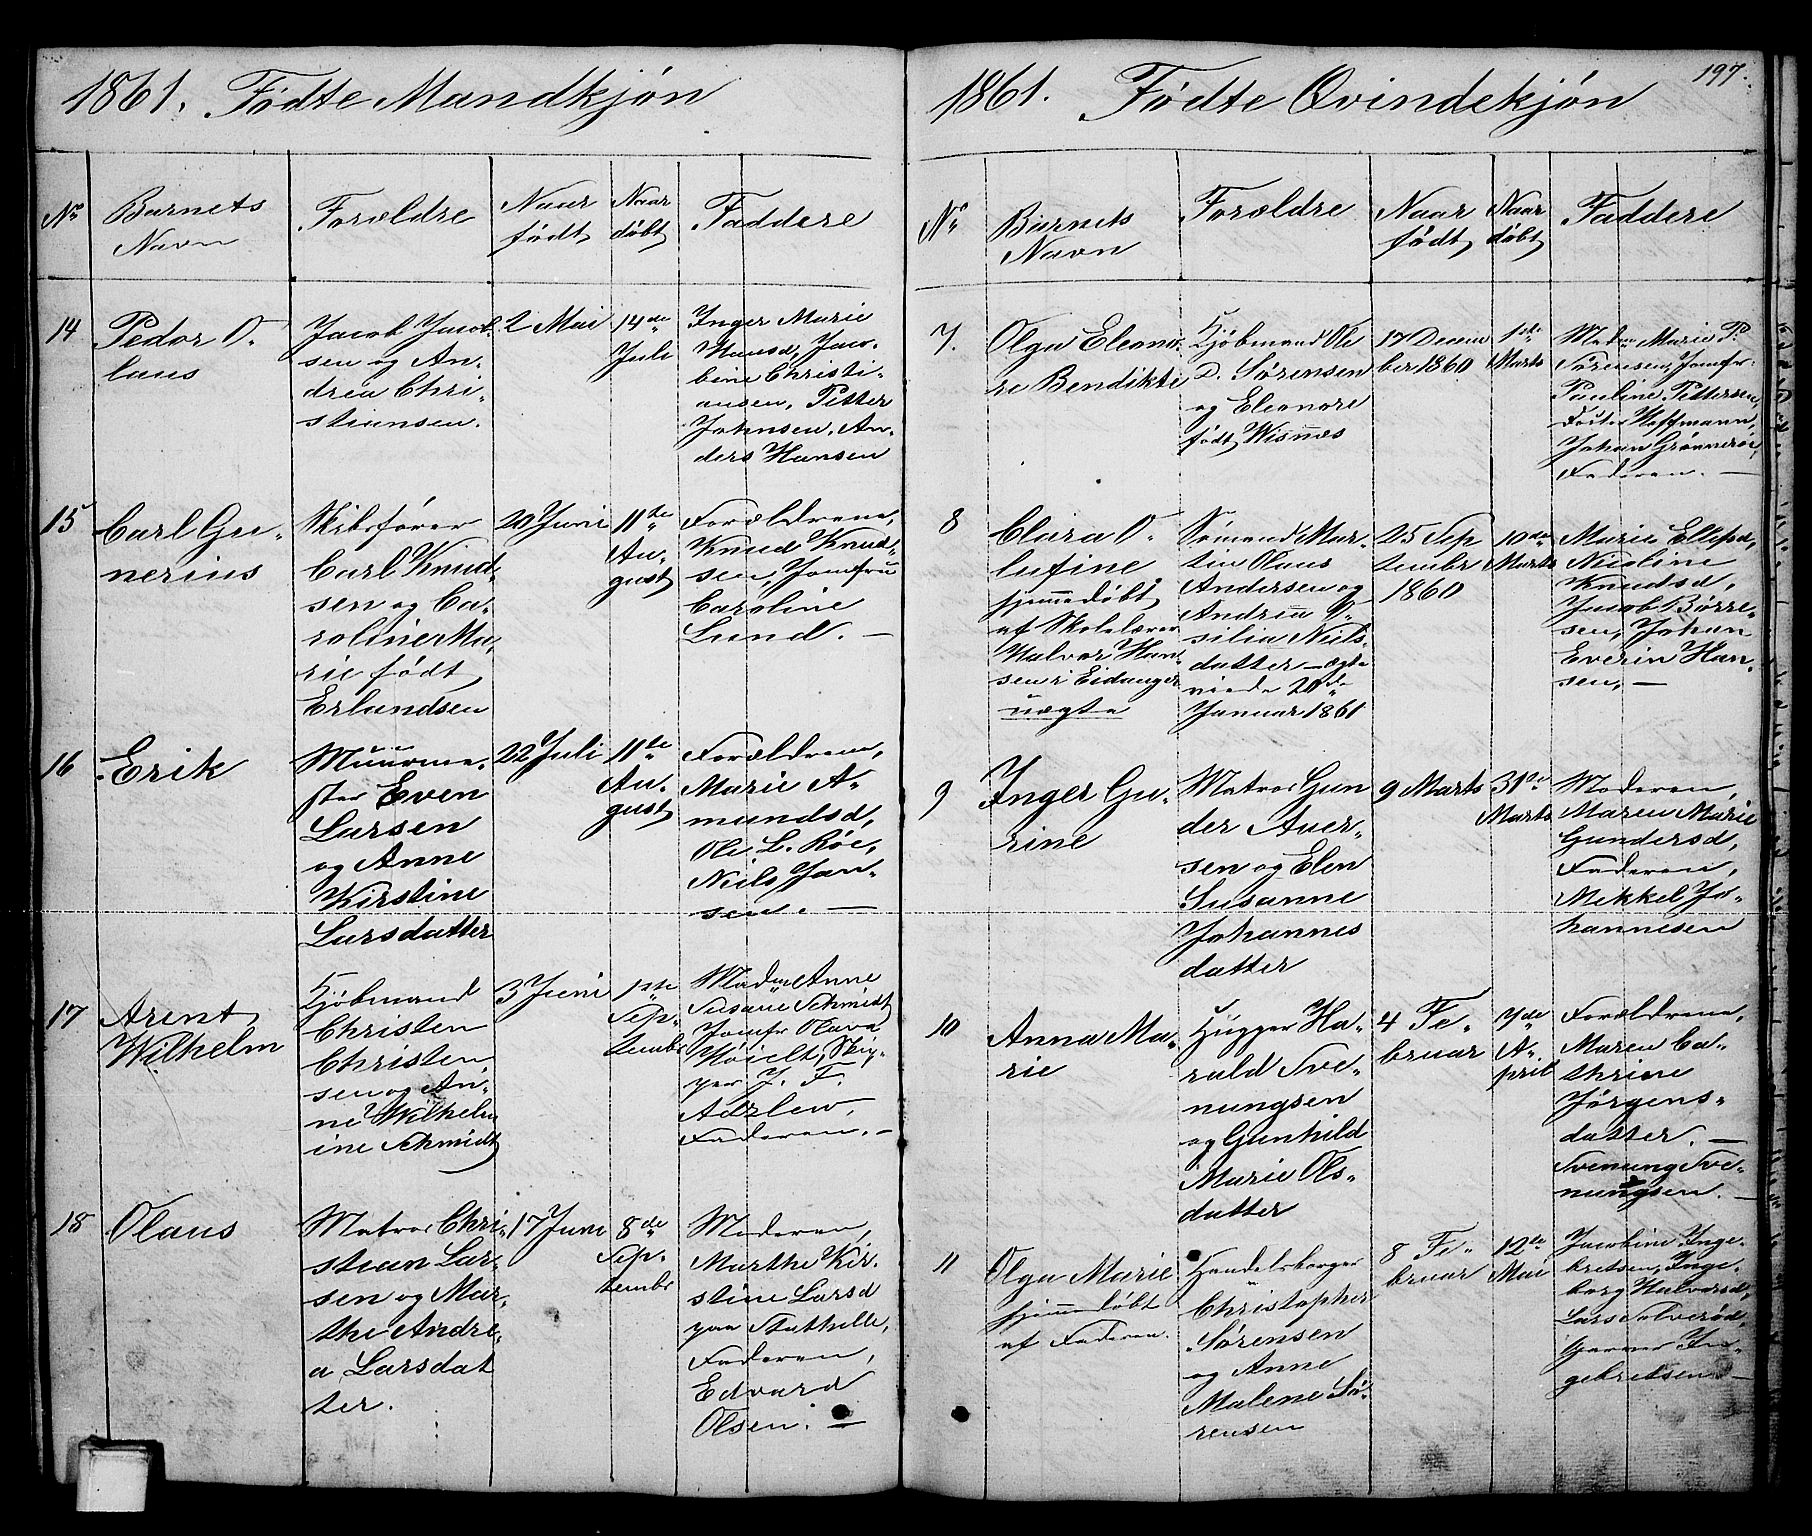 1861. Fødte Mandkjøn
No
Barnets
Navn
Forældre
Naar
født
Naar
døbt
Faddere
14
Pedor O-
laus
Jacob Jacob-
sen og An-
drea Chri-
stiansen.
2 Mai
14de
Juli
Inger Marie
Hansd, Jac-
bine Christi-
ansen, Petter
Johnsen, An-
ders Hansen
15
Carl Gu-
nerius
Skibsfører
Carl Knud-
sen og Ca-
roline Ma-
rie født
Erlandsen
20 Juni
11te
Au-
gust
Forældrene,
Knud Knud-
sen, Jomfru
Caroline
Lund. —
16
Erik
Muurme-
ster Even
Larsen
og Anne
Kirstine
Larsdatter
22 Juli
11te
Au-
gust
Forældrene,
Marie A-
mundsd,
Ole L. Røe,
Niels Jan-
sen. —
17
Arent
Wilhelm
Kjøbmand
Christen
Christen-
sen og An-
ne Wilhelm
ine Schmidt
3 Juni
1ste
Sep-
tembr
Madm Anne
Susane Schmidt
Jomfr Olava
Høielt, Skip-
per J. F.
Faderen. —
18
Olaus
Matros Chri-
stian Lar-
sen og Mar-
the Andre-
a Larsdat
ter.
17 Juni
8de
Sep-
tembr
Moderen,
Marthe Kir-
stine Larsd
paa Stathelle,
Faderen,
Edvard
Olsen. —
1861. Fødte Qvindekjøn
197.
No
Barnets
Navn
Forældre
Naar
født
Naar
døbt
Faddere
7.
Olga Eleono-
re Bendikte
Kjøbmand Ole
D. Sørensen
og Eleonore
født Wisnæs
17 Decem
ber 1860
1ste
Marts
Madm Marie P.
Sørensen, Jomfr.
Pauline Pettersen,
Hoffmann,
Johan Grønnerøe,
Faderen. —
8
Clara O-
lufine
hjemmedøbt
af Skolelærer
Halvor Han-
sen i Eidanger
uægte
Sømand Mar-
tin Olaus
Andersen og
Andrea
silia Niels-
datter — ægte
viede 20de
Januar 1861
25 Sep
tembr
1860
10de
Marts
Marie Ellefsd,
Nicoline
Knudsd,
Jacob Børre-
sen, Johan
Everin Han-
sen, —
9
Inger Gu-
rine
Matros Gun
der Aver-
sen og Elen
Susanne
Johannes
datter
9 Marts
31te
Marts
Moderen,
Maren Marie
Gundersd,
Faderen,
Mikkel Jo-
hannesen
10
Anna Ma-
rie
Hugger Ha-
rald Sve-
nungsen
og Gunhild
Marie Ols-
datter
4 Fe-
bruar
7de
A-
pril
Forældrene,
Maren Ca-
thrine
Jørgens-
datter. —
Svenung Sve-
nungsen. —
11
Olga Marie
hjemmedøbt
af Faderen.
Handelsborger
Christopher
Sørensen
og Anne
Malene Sø-
rensen
8 Fe-
bruar
12te
Mai
Jacobine Inge-
bretsen, Inge-
borg Halvorsd,
Lars Solverød,
In-
gebretsen —